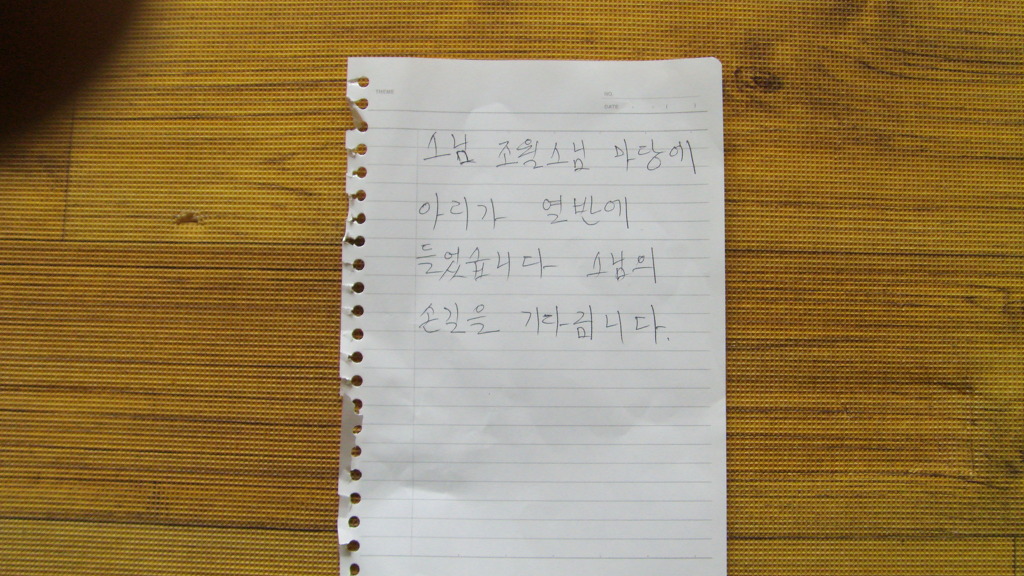 THEME
NO.
DATE . . . ( )
스님 조월스님 마당에
아리가 열반에
들었습니다 스님의
손길을 기다립니다.